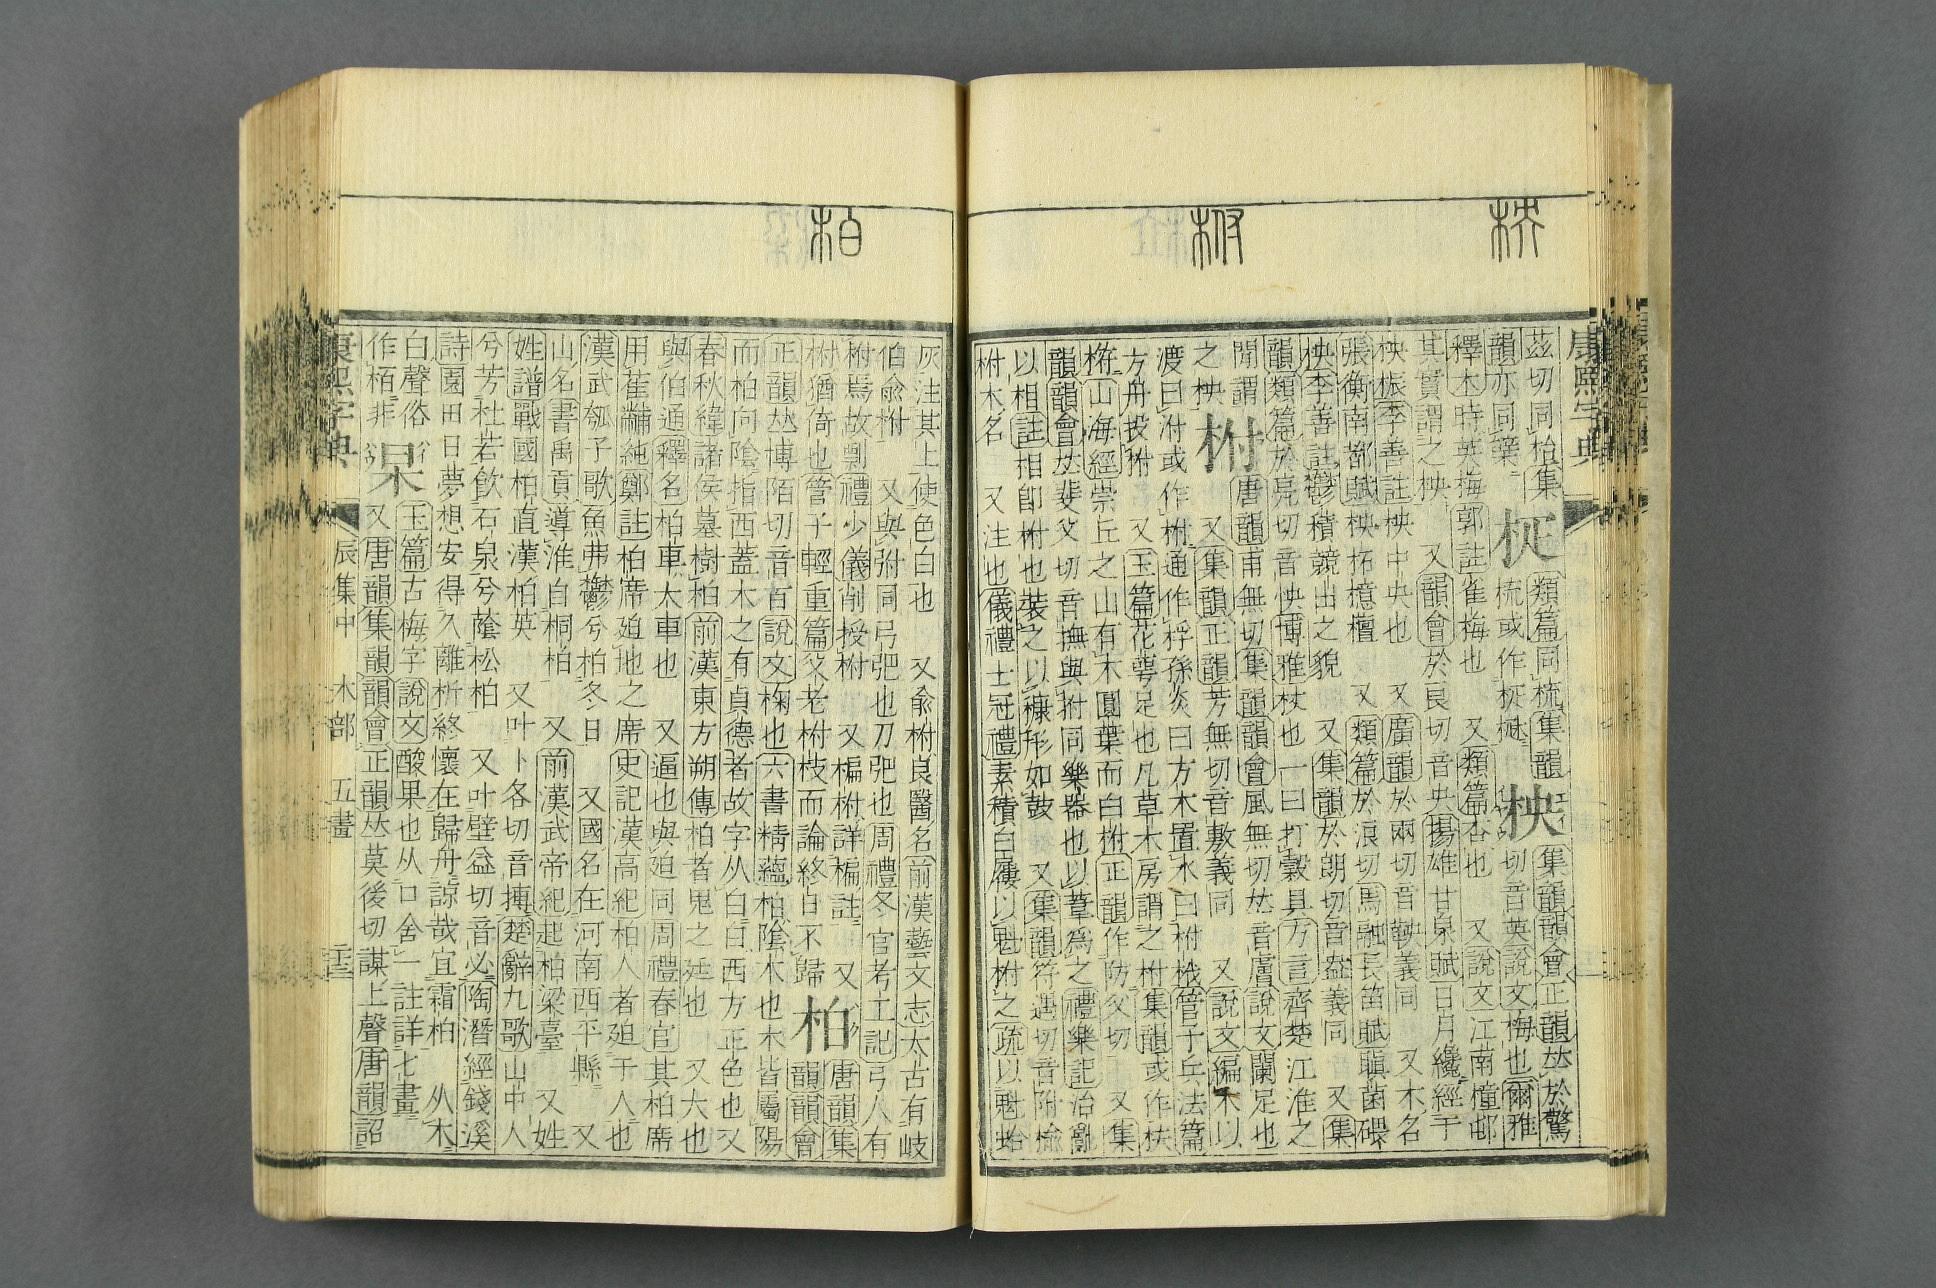 康熙字典
茲切同枱集
韻亦同䕨
柾
類篇同梳集韻
梳或作柾𣒫
柍
集韻韻會正韻𠀤於驚
切音英說文梅也爾雅
釋木時英梅郭註雀梅也 又類篇杏也 又說文江南橦邨
其實謂之柍 又韻會於良切音央揚雄甘泉賦日月纔經于
柍桭李善註柍中央也 又廣韻於兩切音鞅義同 又木名
張衡南都賦柍柘檍檀 又類篇於浪切馬融長笛賦䐜菌碨
柍李善註鬱積競出之貌 又集韻於朗切音盎義同 又集
韻類篇於亮切音怏博雅杖也一曰打穀具方言齊楚江淮之
閒謂
之柍
柎
唐韻甫無切集韻韻會風無切𠀤音膚說文闌足也
又集韻正韻芳無切音敷義同 又說文編木以
渡曰泭或作柎通作桴孫炎曰方木置水曰柎栰管子兵法篇
方舟投柎 又玉篇花萼足也凡草木房謂之柎集韻或作柣
㭳山海經崇丘之山有木圓葉而白柎正韻作防父切 又集
韻韻會𠀤斐父切音撫與拊同樂器也以葦爲之禮樂記治亂
以相註相卽柎也裝之以糠形如鼓 又集韻符遇切音附㮋
柎木名 又注也儀禮士冠禮素積白屨以魁柎之疏以魁蛤
灰注其上使色白也 又兪柎良醫名前漢藝文志太古有岐
伯兪柎 又與弣同弓弝也刀弝也周禮冬官考工記弓人有
柎焉故剽禮少儀削授柎 又楄柎詳楄註 又
柎猶倚也管子輕重篇父老柎枝而論終日不歸
柏
唐韻集
韻韻會
正韻𠀤博陌切音百說文椈也六書精蘊柏陰木也木皆屬陽
而柏向陰指西蓋木之有貞德者故字从白白西方正色也又
春秋緯諸侯墓樹柏前漢東方朔傳柏者鬼之廷也 又大也
與伯通釋名柏車大車也 又逼也與廹同周禮春官其柏席
用萑黼純鄭註柏席廹地之席史記漢高紀柏人者廹于人也
漢武瓠子歌魚弗鬱兮柏冬日 又國名在河南西平縣 又
山名書禹貢導淮自桐柏 又前漢武帝紀起柏梁臺 又姓
姓譜戰國柏直漢柏英 又叶卜各切音摶楚辭九歌山中人
兮芳杜若飮石泉兮蔭松柏 又叶壁益切音必陶潛經錢溪
詩園田日夢想安得久離析終懷在歸舟諒哉宜霜柏 从木
白聲俗
作栢非
呆
玉篇古梅字說文酸果也从口含一註詳七畫
又唐韻集韻韻會正韻𠀤莫後切謀上聲唐韻詔
康熙字典
辰集中 木部 五畫